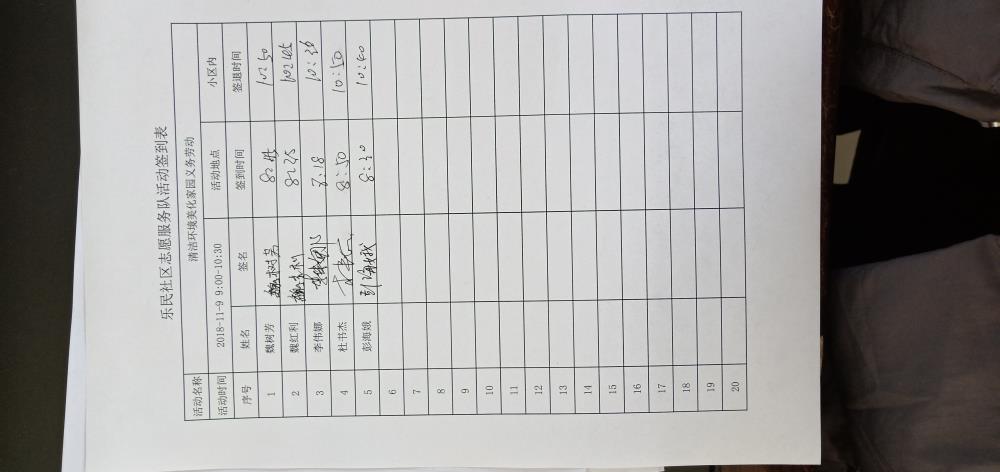 乐民社区志愿服务队活动签到表
活动名称 清洁环境美化家园义务劳动
活动时间 2018-11-9 9:00-10:30 活动地点 小区内
序号 姓名 签名 签到时间 签退时间
1 魏树芳 魏树芳 10:50
2 魏红利 魏红利 8:25 10:45
3 李伟娜 李伟娜 7:18 10:26
4 杜书杰 8:50 10:50
5 彭海娥 彭海娥 8:30 10:40
6
7
8
9
10
11
12
13
14
15
16
17
18
19
20